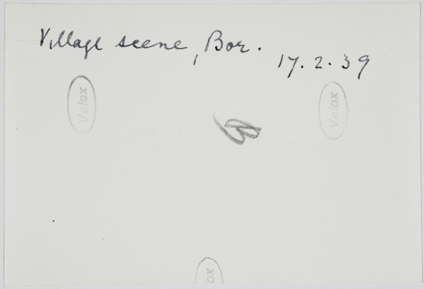 Village scene, Bor.
17.2.39
Velox
Velox